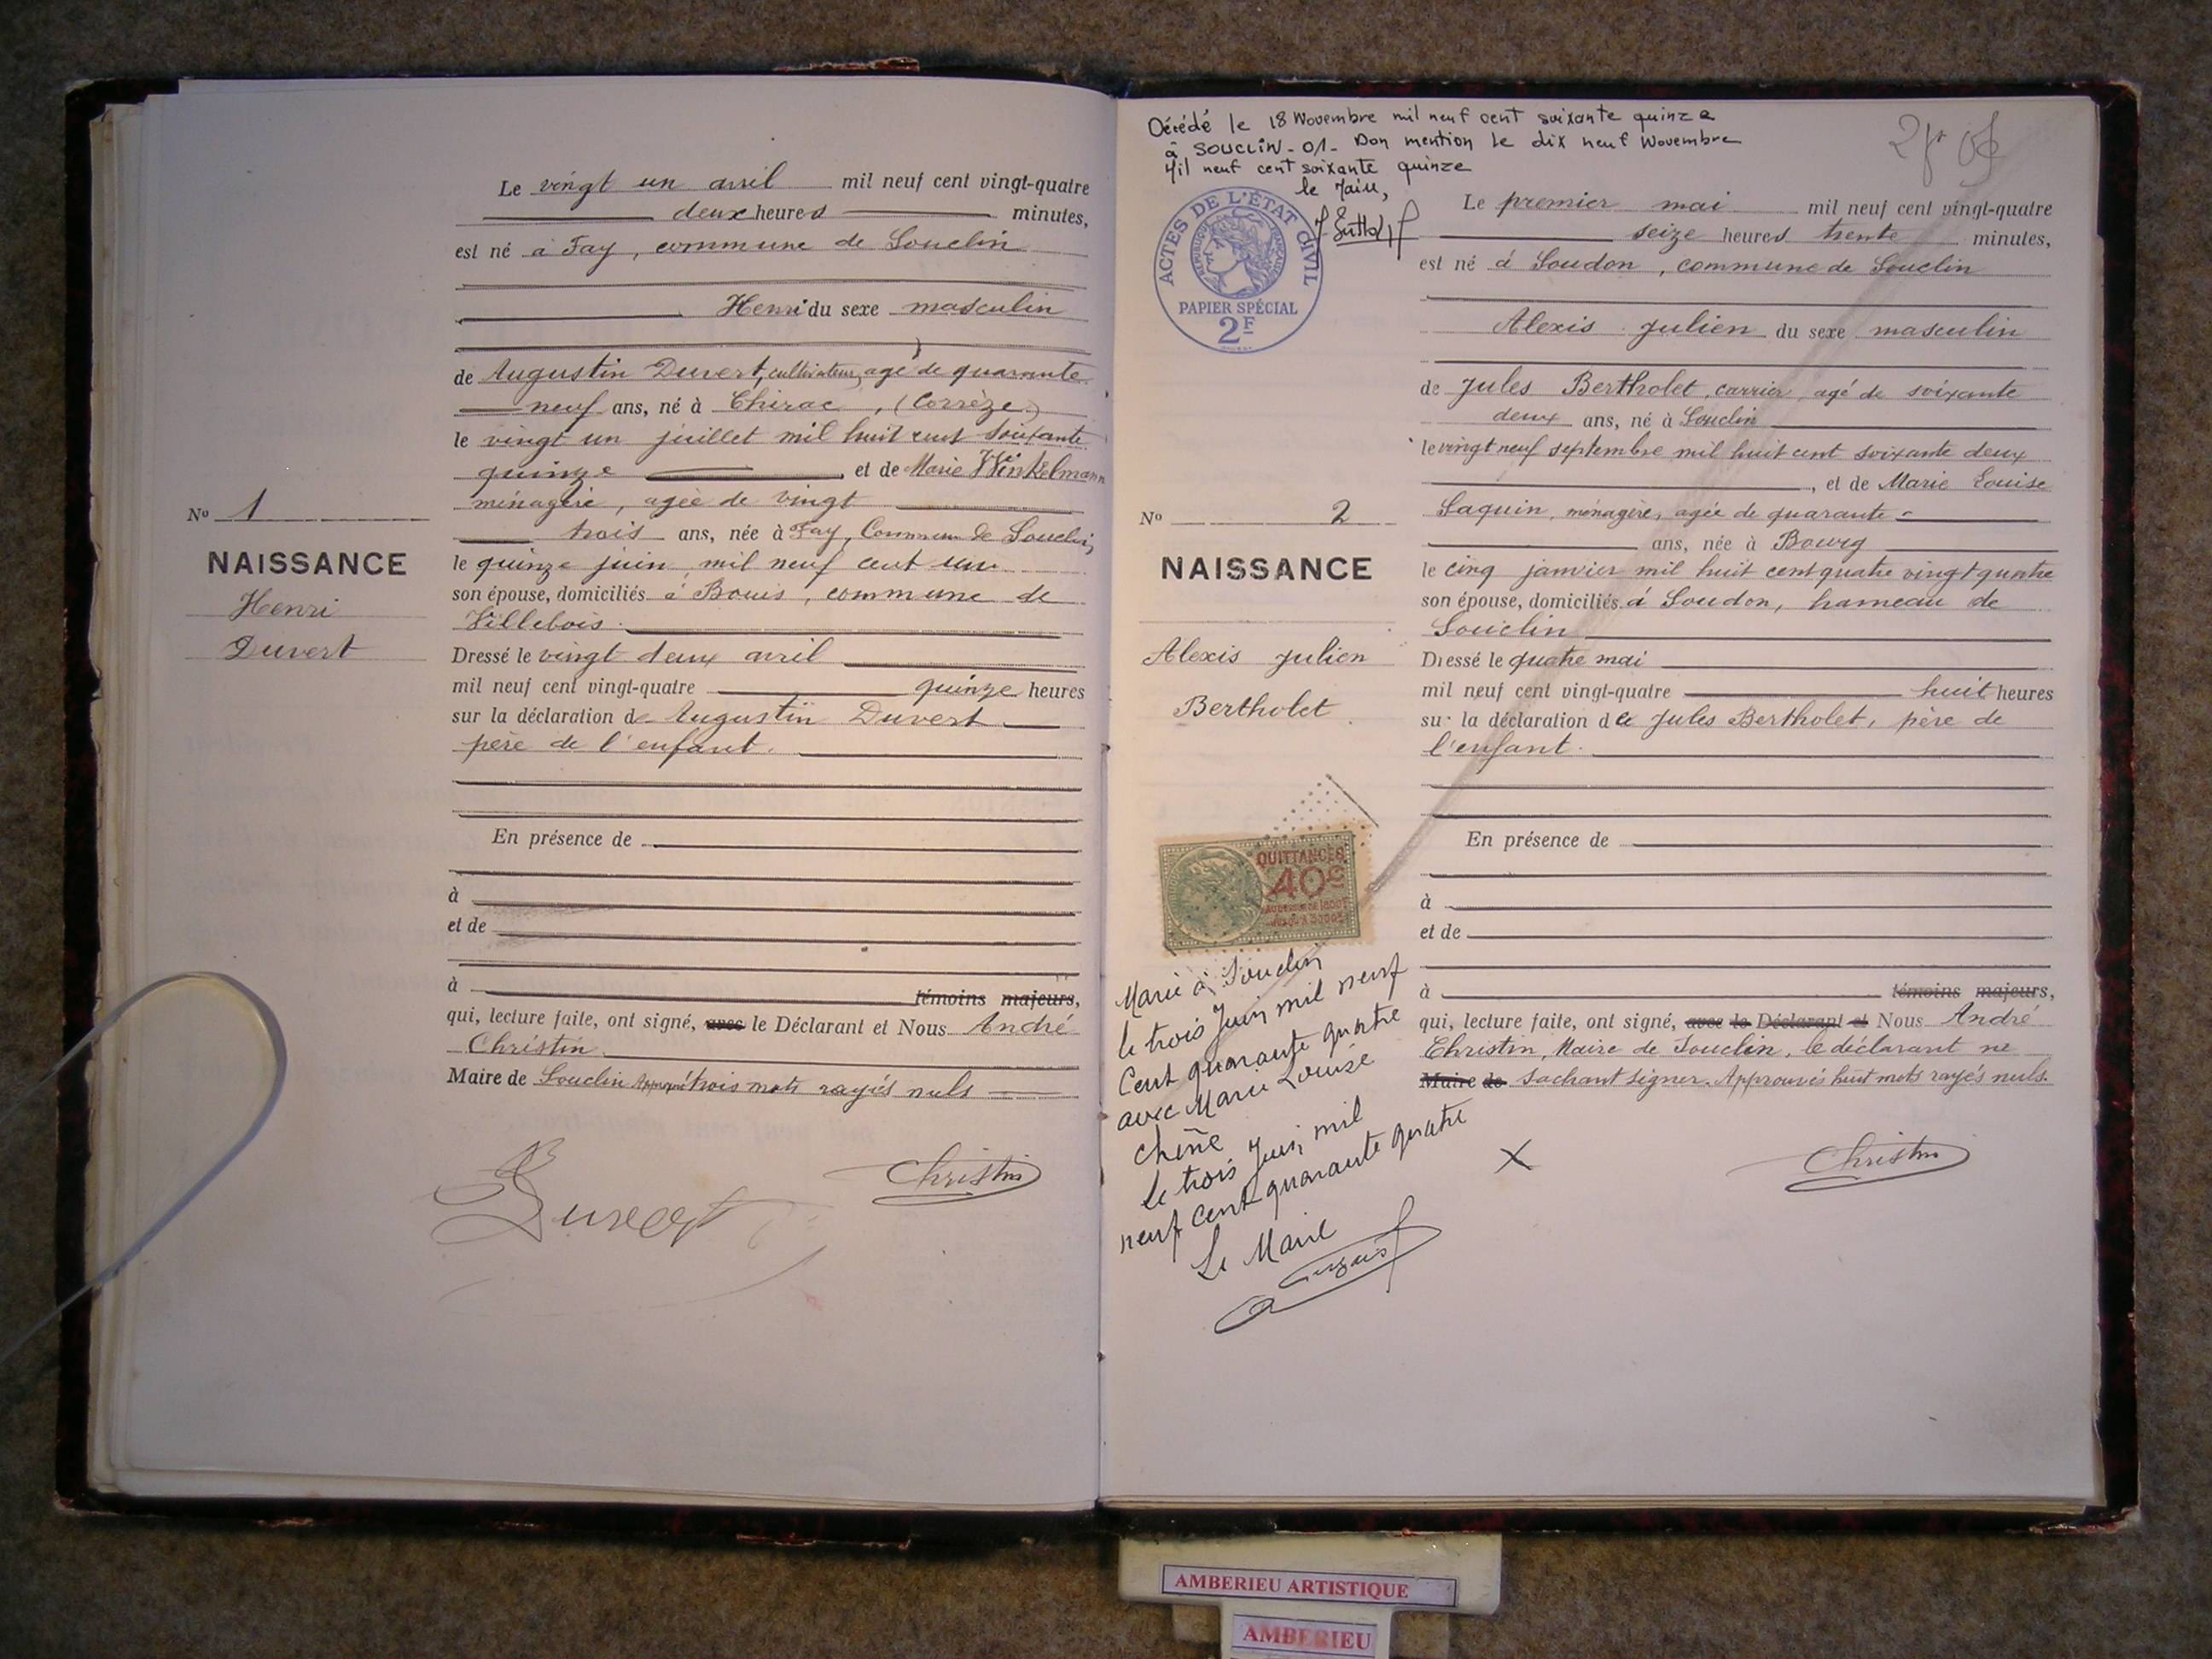 Le vingt un avril mil neuf cent vingt-quatre
deux heures minutes,
est né à Fay, commune de Souclin
Henri du sexe masculin
de Augustin Duvert, cultivateur, agé de quarante
neuf ans, né à Chirac, (Corrèze)
le vingt un juillet mil huit cent soixante
quinze et de Marie Winkelmann
ménagère, agée de vingt
trois ans, née à Fay, Commune de Souclin,
le quinze juin mil neuf cent un
son épouse, domiciliés à Bouis, commune de
Villebois.
Dressé le vingt deux avril
mil neuf cent vingt-quatre quinze heures
sur la déclaration de Augustin Duvert
père de l'enfant.
En présence de
à
et de
à témoins majeurs,
qui, lecture faite, ont signé, avec le Déclarant et Nous André
Christin
Maire de Souclin Approuvé trois mots rayés nuls
Duvert
Christin
No 1
NAISSANCE
Henri
Duvert
Décédé le 18 Novembre mil neuf cent soixante quinze
à SOUCLIN - 01 - Don mention le dix neuf Novembre
Mil neuf cent soixante quinze
le Maire,
ACTES DE L'ÉTAT CIVIL
RÉPUBLIQUE FRANÇAISE
PAPIER SPÉCIAL
2F
No 2
NAISSANCE
Alexis Julien
Bertholet
QUITTANCES
40c
Marié à Souclin
le trois Juin mil neuf
Cent quarante quatre
avec Marie Louise
Chêne
le trois Juin mil
neuf cent quarante quatre
Le Maire
Le premier mai mil neuf cent vingt-quatre
seize heures trente minutes,
est né à Soudon, commune de Souclin
Alexis Julien du sexe masculin
de Jules Bertholet, carrier, agé de soixante
deux ans, né à Souclin
le vingt neuf septembre mil huit cent soixante deux
, et de Marie Louise
Saquin, ménagère, agée de quarante
ans, née à Bourg
le cinq janvier mil huit cent quatre vingt quatre
son épouse, domiciliés à Soudon, hameau de
Souclin
Dressé le quatre mai
mil neuf cent vingt-quatre huit heures
sur la déclaration de Jules Bertholet, père de
l'enfant.
En présence de
à
et de
à témoins majeurs,
qui, lecture faite, ont signé, avec le Déclarant et Nous André
Christin, Maire de Souclin, le déclarant ne
Maire de sachant signer. Approuvés huit mots rayés nuls.
X
Christin
AMBERIEU ARTISTIQUE
AMBERIEU